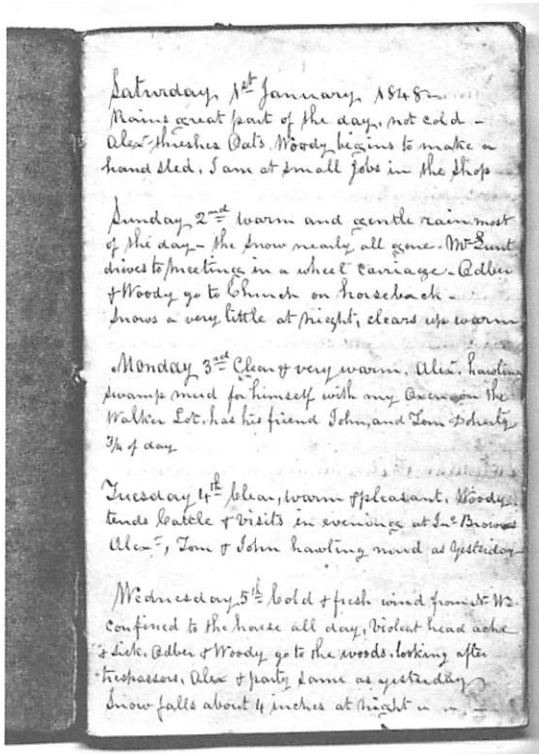 Saturday 1st January 1848 -
Rains great part of the day, not cold -
Alexr threshes Oats. Woody begins to make a
hand sled. I am at small Jobs in the Shop
Sunday 2nd warm and gentle rain most
of the day - the Snow nearly all gone. Mr Lunt
drives to Meeting in a wheel Carriage - Adber
& Woody go to Church on horseback -
Snows a very little at night, clears up warm
Monday 3rd Clear & very warm. Alexr. hawling
swamp mud for himself with my Oxen on the
Walker Lot. has his friend John, and Tom Doherty
3/4 of day
Tuesday 4th Clear, warm & pleasant. Woody
tends Cattle & Visits in evening at Jno Browns
Alexr, Tom & John hawling mud as Yesterday
Wednesday 5th Cold & fresh wind from N. W.
confined to the house all day, Violent head ache
& Sick. Adber & Woody go to the woods. looking after
trespassers, Alex & party same as yesterday
Snow falls about 4 inches at night